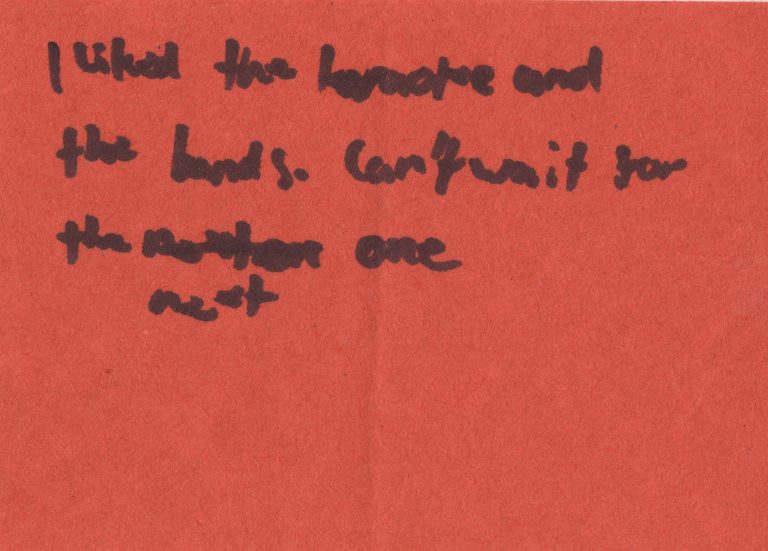 I liked the karaoke and
the bands. Can't wait for
the one
next